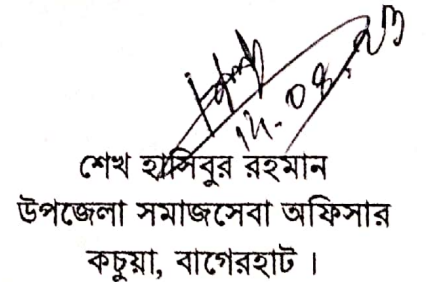 ১৮.০৪.২৩
শেখ হাসিবুর রহমান
উপজেলা সমাজসেবা অফিসার
কচুয়া, বাগেরহাট ।